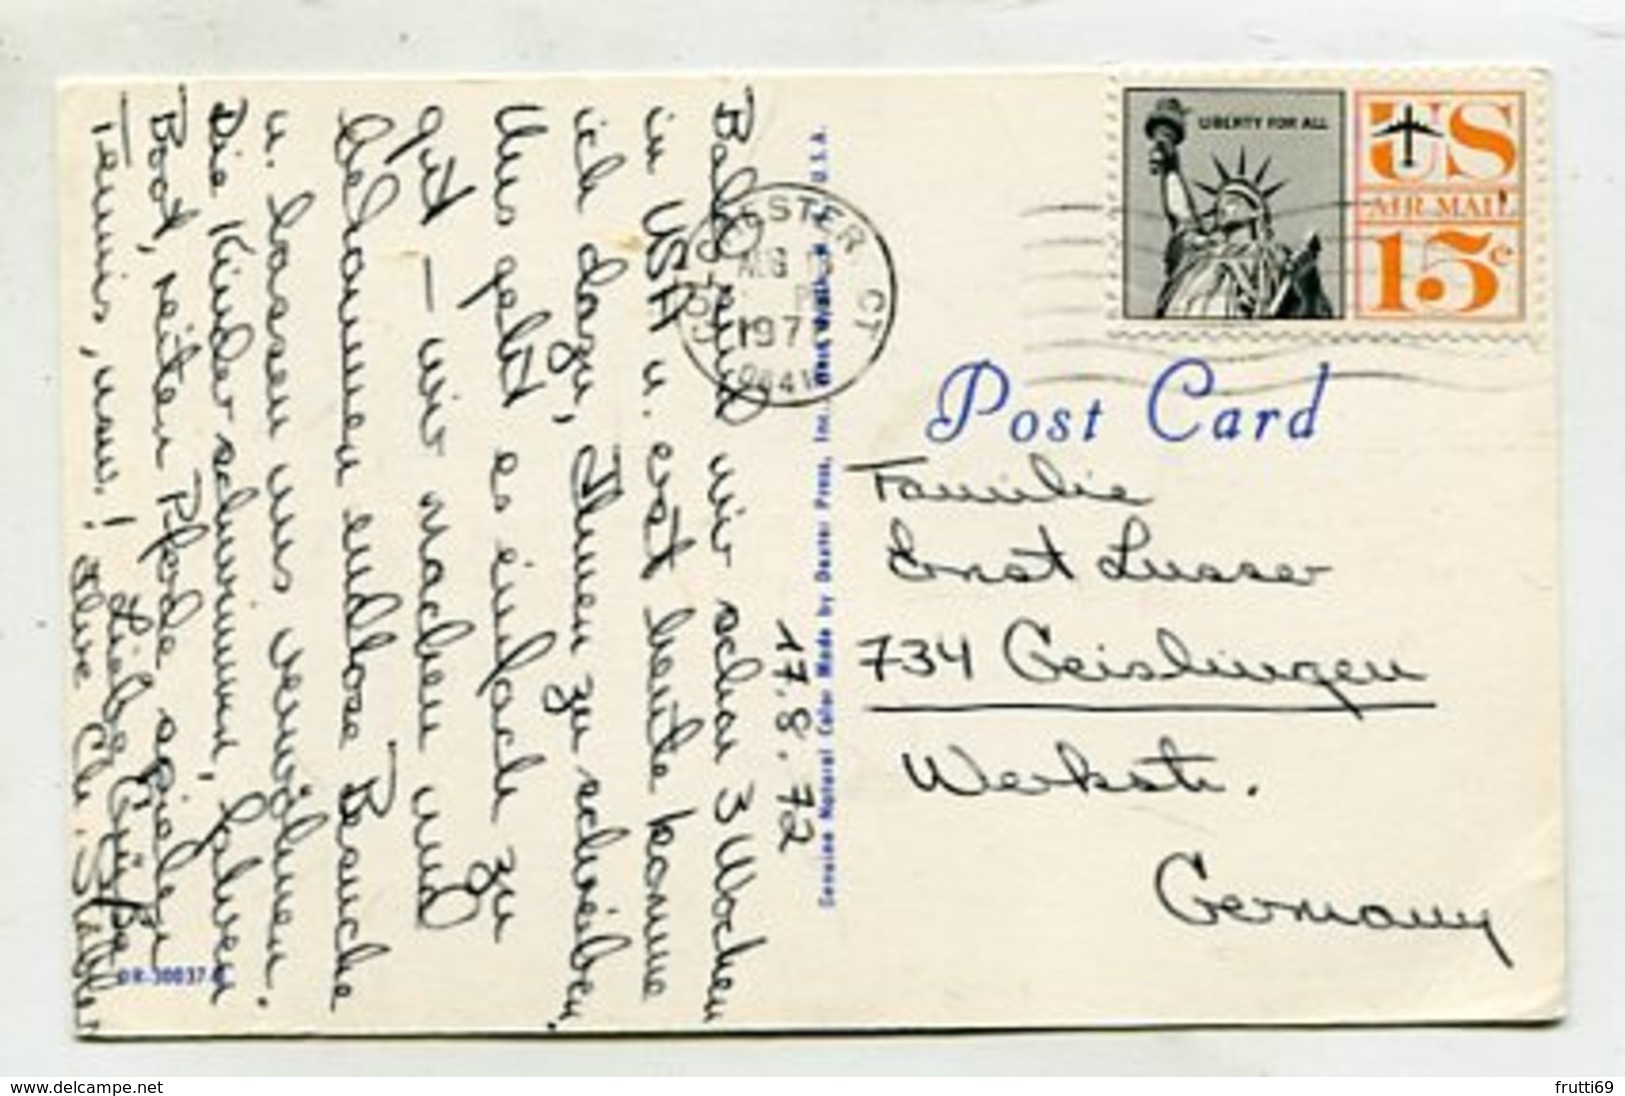 17.8.72
Bald sind wir schon 3 Wochen
in USA u. erst heute komme
ich dazu, Ihnen zu schreiben.
Uns geht es einfach zu
gut – wir machen und
bekommen endlose Besuche
u. lassen uns verwöhnen.
Die Kinder schwimmen, fahren
Boot, reiten Pferde spielen
Tennis, usw.! Liebe Grüße
Ihre Chr.
LIBERTY FOR ALL
US
AIR MAIL
15c
COLCHESTER CT
AUG
197
Post Card
Familie
Ernst Lusser
734 Geislingen
Werkstr.
Germany
Genuine Natural Color Made by Dexter Press, Inc. West Nyack, N.Y. U.S.A.
DR-30037-
www.delcampe.net
frutti69